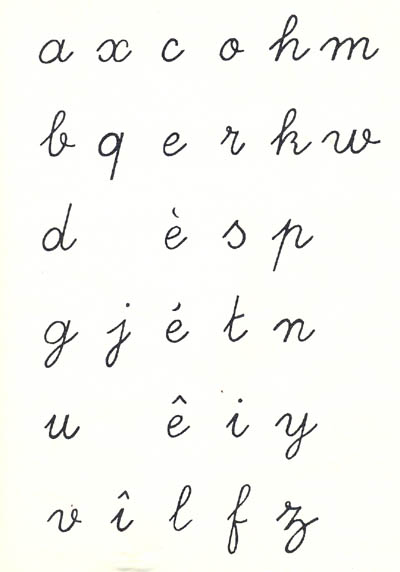 a x c o h m
b q e r k w
d è s p
g j é t n
u ê i y
v î l f z